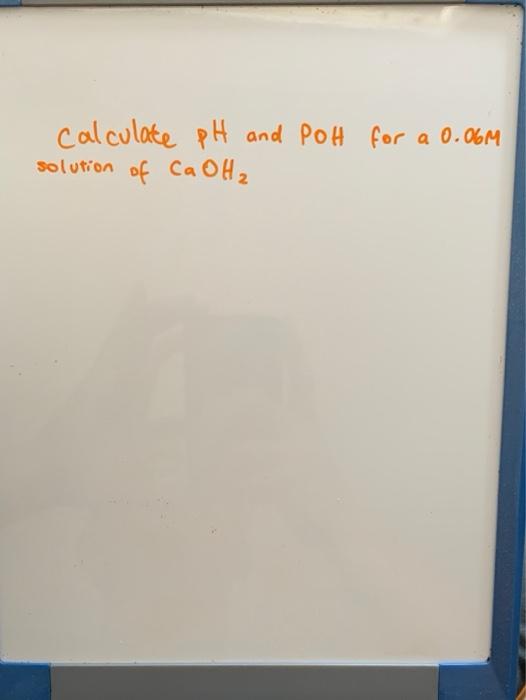 Calculate pH and POH for a 0.06M
solution of CaOH₂